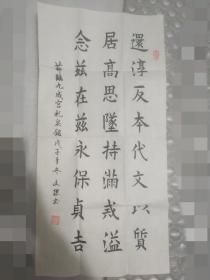 還淳反本代文以質
居高思墜持滿戒溢
念茲在茲永保貞吉
節臨九成宮醴泉銘戊子年冬